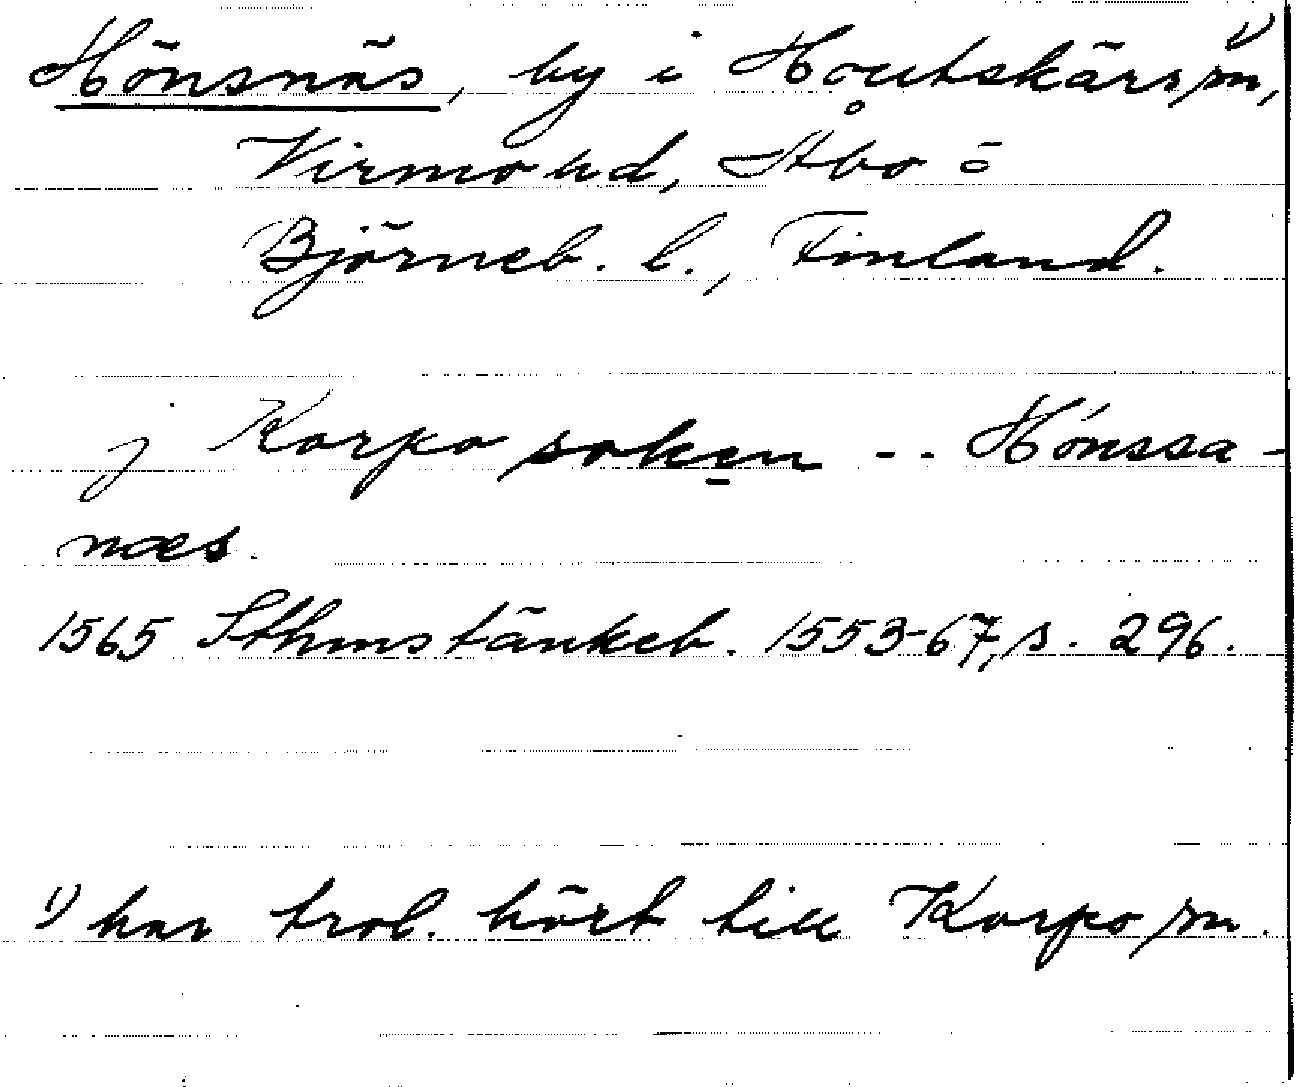 Hönsnäs, by i Houtskärs sn¹⁾,
Virmo hd, Åbo o
Björneb. l., Finland.
j Korpo soken -- Hónssa-
næs.
1565 Sthmstänkeb. 1553-67, s. 296.
¹⁾ har trol. hört till Korpo sn.